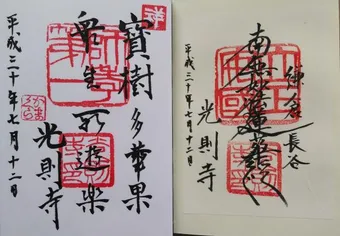 寶樹多華果
衆生所遊楽
光則寺
平成三十年七月十二日
鎌倉 長谷
南無妙法蓮華経
光則寺
平成三十年七月十二日